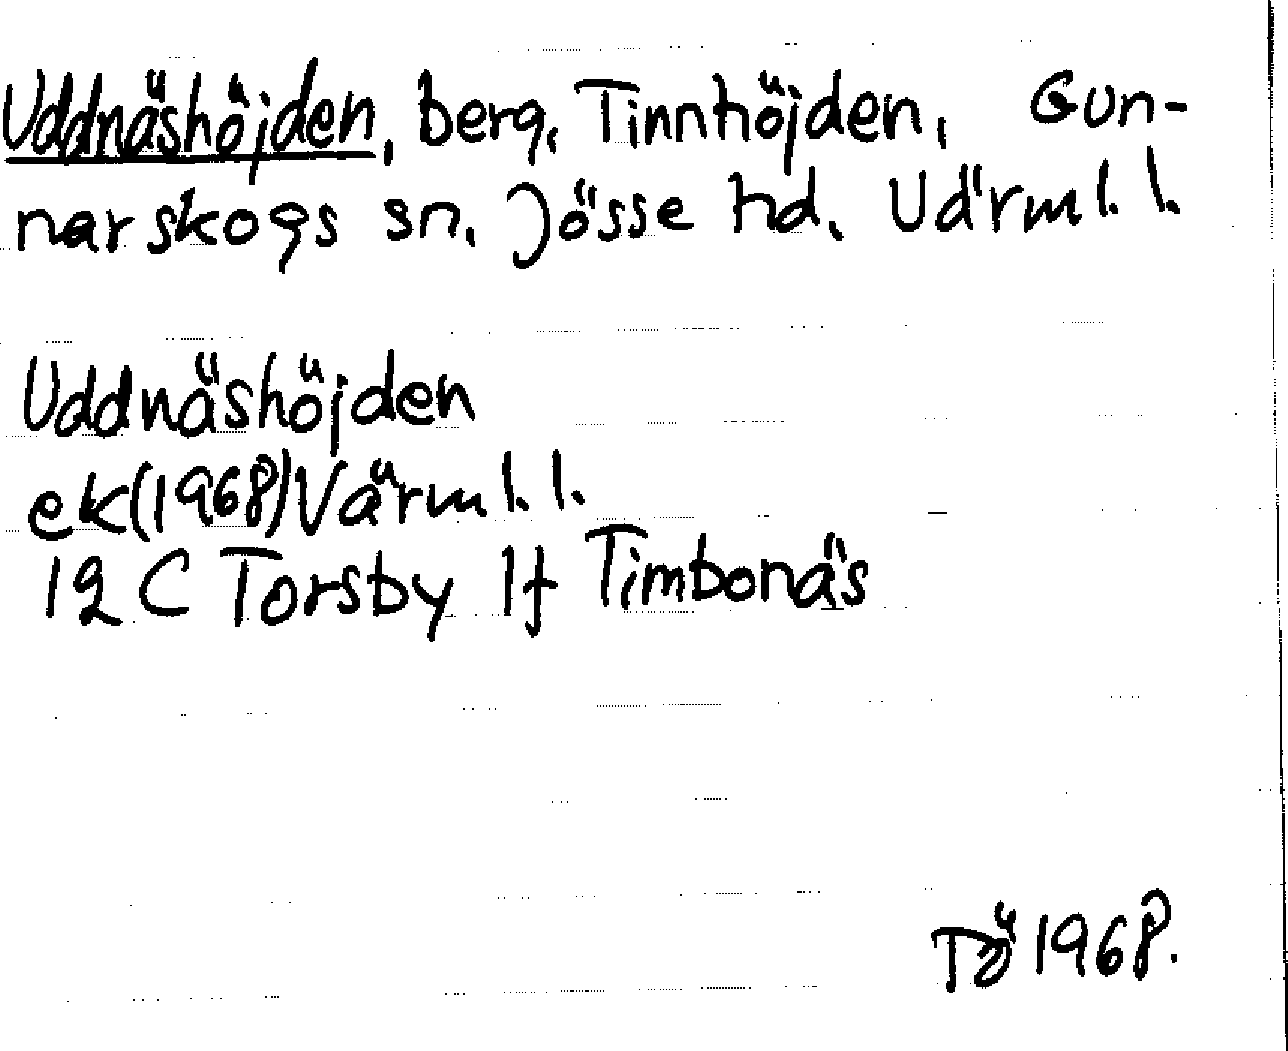 Uddnäshöjden, berg, Tinnhöjden, Gun-
narskogs sn. Jösse hd. Värml. l.
Uddnäshöjden
ek(1968) Värml. l.
12 C Torsby 1f Timbonäs
TÖ 1968.